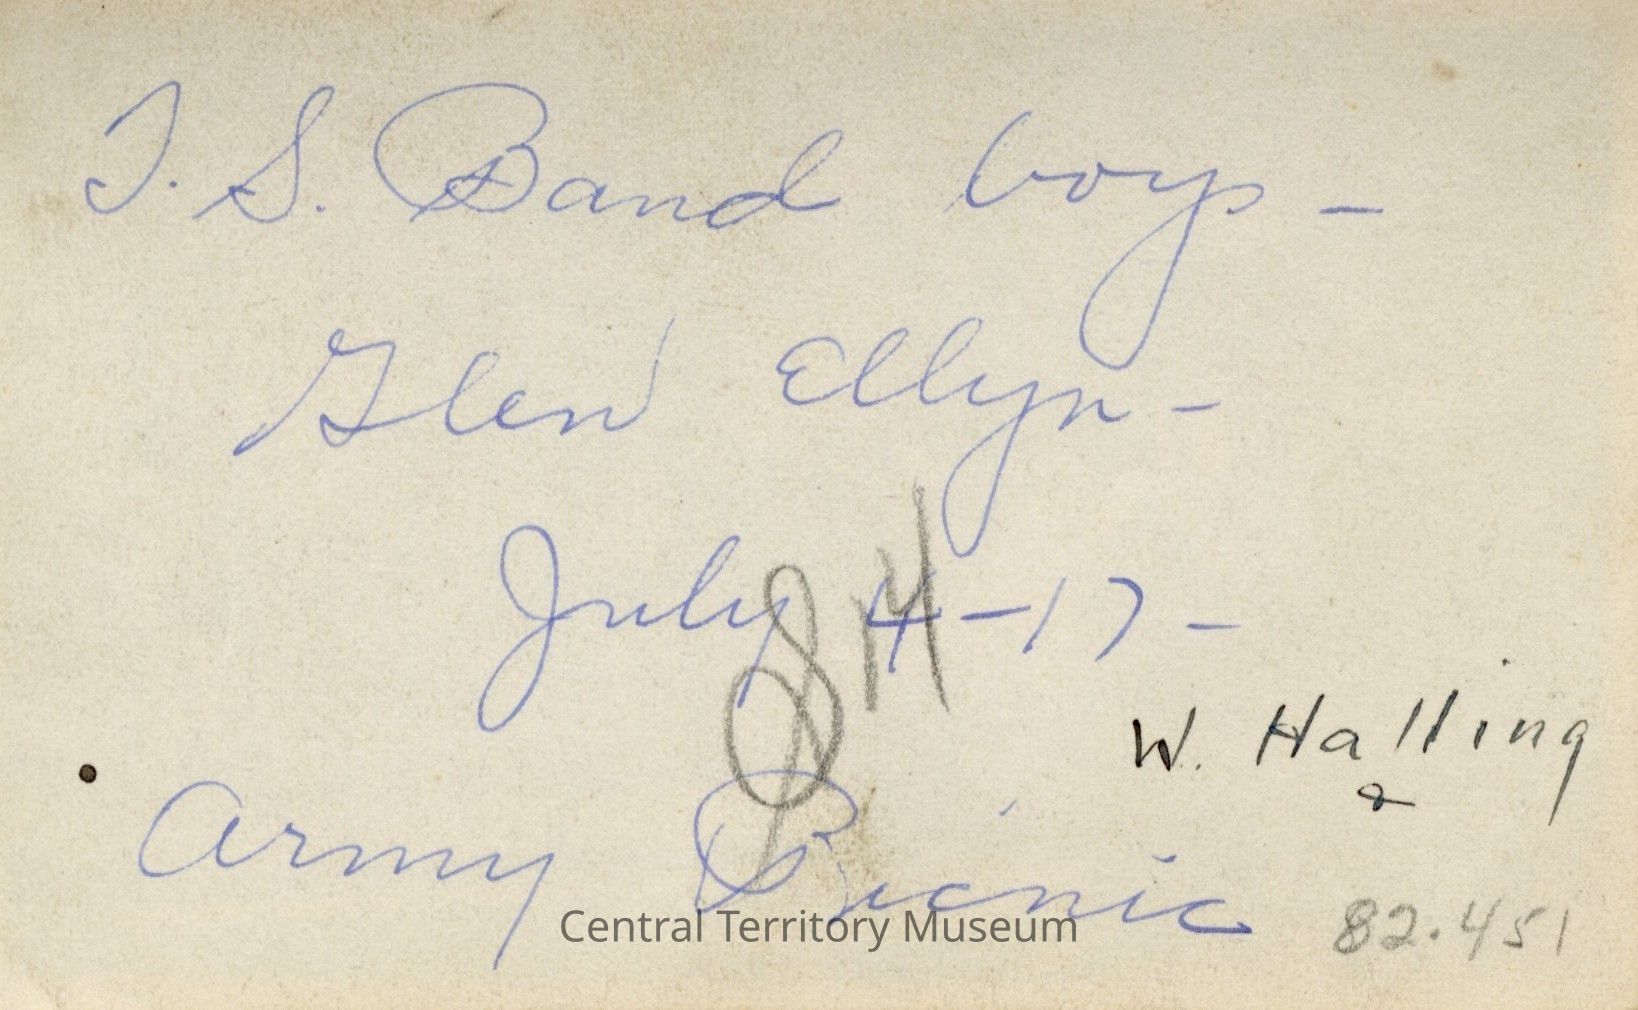 T. S. Band boys –
Glen Ellyn –
July 4 – 17 –
W. Halling
Army Picnic
82.451
Central Territory Museum